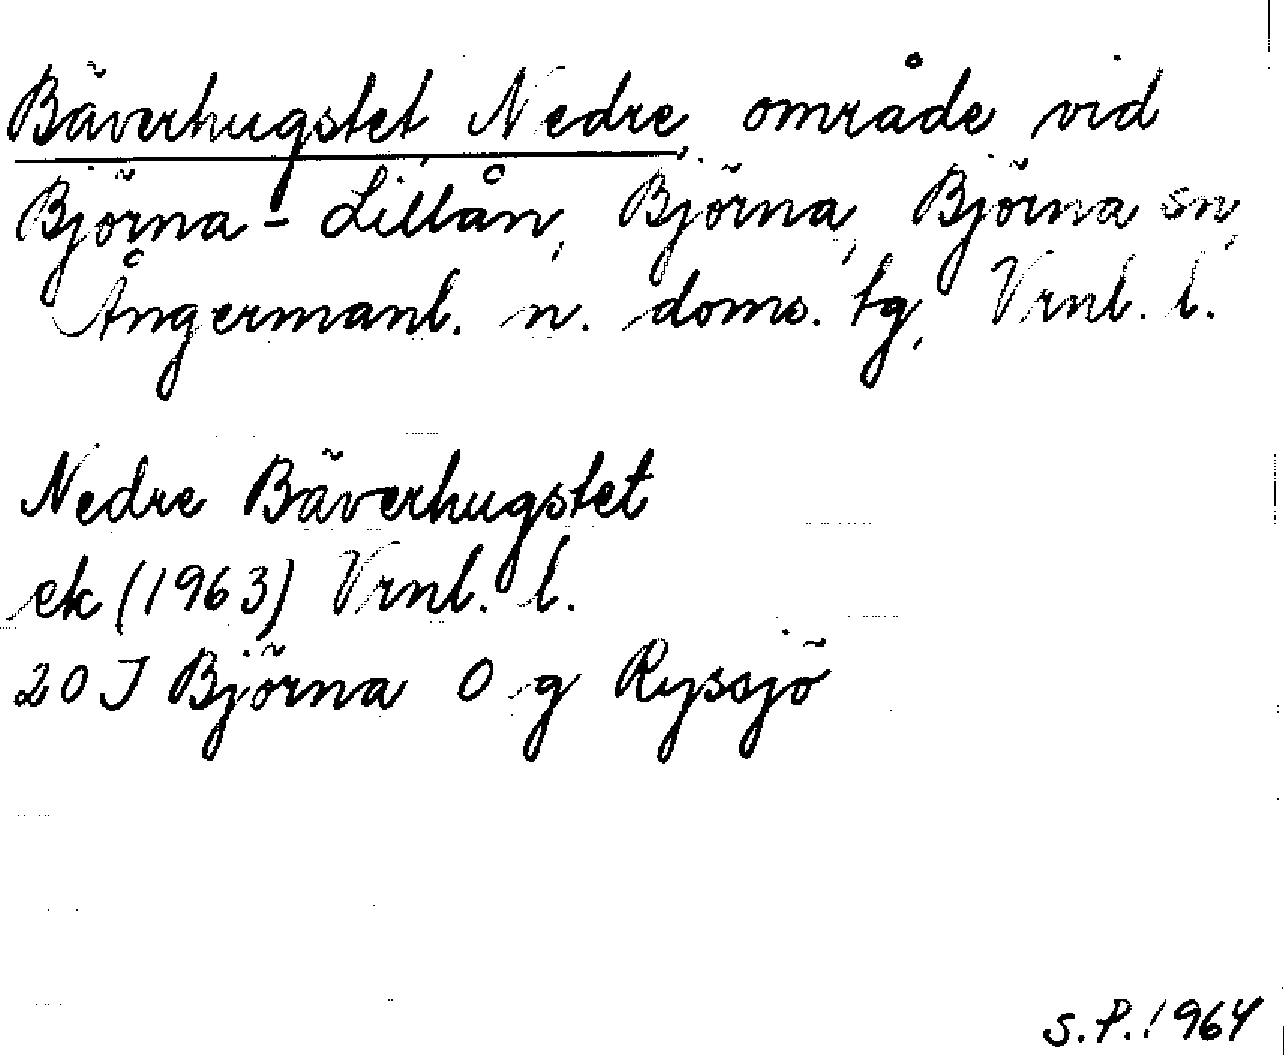 Bäverhugstet, Nedre, område vid
Björna-Lillån, Björna, Björna sn,
Ångermanl. n. doms. tg, Vrnl. l.
Nedre Bäverhugstet
ek (1963) Vrnl. l.
20 J Björna 0 g Ryssjö
S.P. 1964